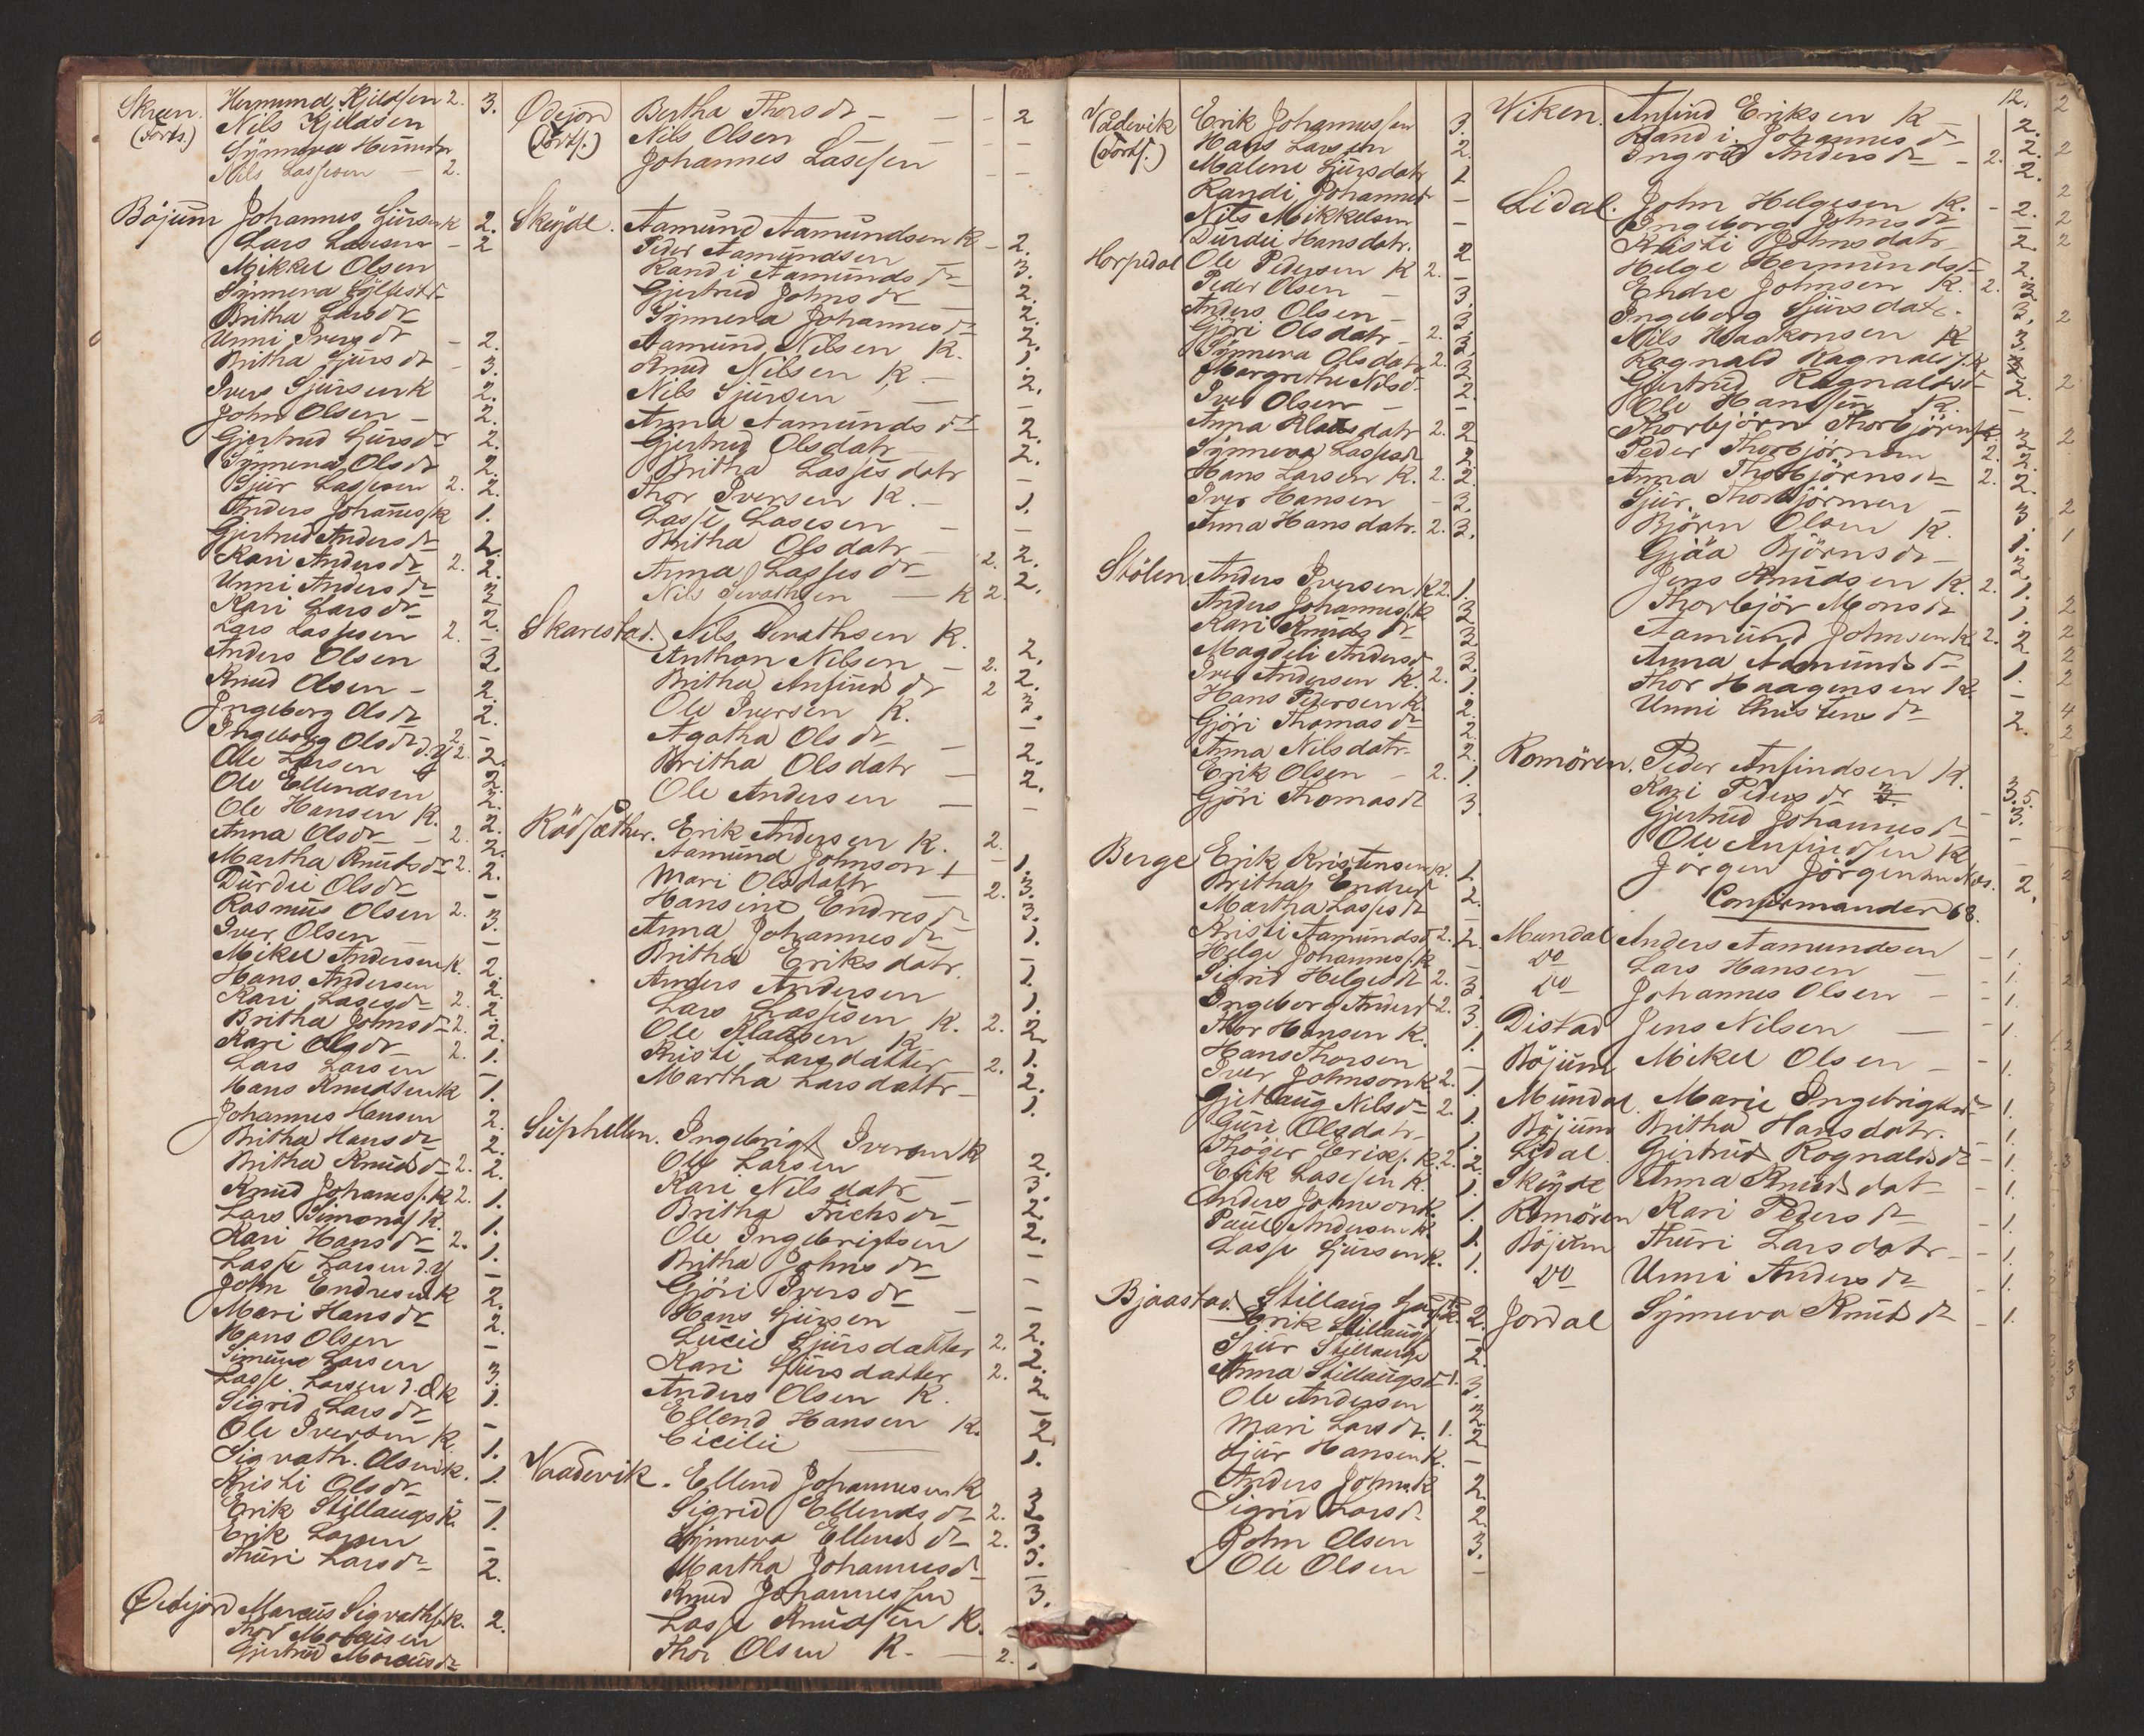 Skreen. Hermund Kjeldsen 2. 3.
(Forts.) Nils Kjeldsen
Synneva Hermdr
Nils Lassesen – 2.
Böjum Johannes Sjursen K 2.
Lars Lassesen – 2
Mikkel Olsen
Synneva
Britha Larsdr
Unni Iversdr – 2.
Britha Sjursdr – 3.
Iver Sjursen K 2.
John Olsen – 2.
Gjertrud Sjursdr 2.
Synneva Olsdr 2.
Sjur Lassesen 2. 2.
Anders Johanes/K 1.
Gjertrud Andersdr 2.
Kari Andersdr 2. 2.
Unni Andersdr 3
Kari Larsdr 2.
Lars Lassesen 2. –
Anders Olsen 3.
Knud Olsen – 2.
Ingeborg Olsdr 2.
Ingeborg Olsdr d.y 2 –
Ole Larsen 2. 2.
Ole Ellendsen 2.
Ole Hansen K. 2.
Anna Olsdr – 2. 2.
Martha Knudsdr 2. 2.
Durdei Olsdr –
Rasmus Olsen 2. 3.
Iver Olsen –
Mikel Andersen K. 2.
Hans Andersen 2.
Kari Lassesdr 2. 2.
Britha Johnsdr 2. 2.
Kari Olsdr 2. 1.
Lars Larsen –
Hans Knudsen K 1.
Johannes Hansen 2.
Britha Hansdr 2.
Britha Knudsdr 2. 2.
Knud Johanes/K 2. 1.
Lars Simons/K. 1.
Kari Hansdr 2. 1.
Lasse Larsen d.y –
John Endresen K 2.
Mari Hansdr 2.
Hans Olsen –
Simun Larsen 3.
Lasse Larsen d.Æ K 1.
Sigrid Larsdr –
Ole Iversen K. 1.
Sigvath. Olsen K. 1.
Kristi Olsdr –
Erik Stillaugs K. 1.
Erik Larsen –
Thuri Larsdr 2.
Ødejord Marcus Sigvaths K. 2.
Thor Marcusen
Gjertrud Marcusdr
Ødejord Bertha Thorsdr – – – 2
(Forts.) Nils Olsen – – –
Johannes Lassesen – –
Skeyde. Aamund Aamundsen K – 2.
Peder Aamundsen 3.
Randi Aamundsdr 2.
Gjertrud Johnsdr 2.
Synneva Johannesdr 2.
Aamund Nilsen K. 1.
Knud Nilsen K. – 2.
Nils Sjursen – –
Anna Aamundsdr 2.
Gjertrud Olsdatr 2.
Britha Lassesdatr –
Thor Iversen K. – 1.
Lasse Lassesen – –
Britha Olsdatr – 2. 2.
Anna Lassesdr 2.
Nils Sevathsen – K 2.
Skarestad. Nils Sevathsen K. 2.
Anthon Nilsen – 2. 2.
Britha Anfindsdr 2 3.
Ole Iversen K. –
Agatha Olsdr – 2.
Britha Olsdatr – 2.
Ole Andersen – –
Rödsæther. Erik Andersen K. 2. –
Aamund Johnson + 1.
Mari Olsdattr 2. 3.
Hansine Endresdr 3.
Anna Johannesdr 1.
Britha Eriksdatr. –
Anders Andersen 1.
Lars Lassesen K. 2. 2.
Ole Klausen K 1.
Kristi Larsdatter 2. 2.
Martha Larsdattr – 1.
Suphellen. Ingebrigt Iversen K 2.
Ole Larsen 3.
Kari Nilsdatr 2.
Britha Frichsdr 2.
Ole Ingebrigtsen –
Britha Johnsdr –
Gjöri Iversdr –
Hans Sjursen 2.
Lucie Sjursdatter 2. 2.
Kari Sjursdatter 2. 2.
Anders Olsen K. –
Ellend Hansen K. 2.
Cicilie 1.
Vaadevik. Ellend Johannesen K 3
Sigrid Ellendsdr 2. 3.
Synneva Ellendsdr 2. 3.
Martha Johannesdr –
Knud Johannessen 3.
Lasse Knudsen K.
Thor Olsen K. – 2.
Vadevik Erik Johannessen 3.
(Forts.) Hans Larsen 2.
Malene Sjursdatr 1
Randi Johannesdr –
Nils Mikkelsen –
Durdei Hansdatr. 2
Horpedal Ole Pedersen K 2. –
Peder Olsen – 3.
Anders Olsen – 3.
Gjöri Olsdatr – 2. 3.
Synneva Olsdatr 2. 3.
Margrethe Nilsdr. 2.
Iver Olsen – –
Anna Klausdatr 2. 2
Synneva Lassesdr 2
Hans Larsen K. 2. 2.
Iver Hansen – 3.
Anna Hansdatr. 2. 3.
Stölen Anders Iversen K 2. 1.
Anders Johannes/K. 3
Kari Knudsdr 3
Magdeli Andersdr 3.
Iver Andersen K. 2. 1.
Hans Pedersen K 2.
Gjöri Thomasdr 2.
Anna Nilsdatr. 2.
Erik Olsen – 2. 1.
Gjöri Thomasdr 3.
Berge Erik Kristensen K. 1
Britha Endresdr 2.
Martha Lassesdr –
Kristi Aamundsdr 2. 2.
Helge Johannes/K –
Sigrid Helgesdr 2. 3.
Ingeborg Andersdr 2. 3.
Thor Hansen K. 1.
Hans Thorsen –
Iver Johnson K. 2. 1.
Gjetlaug Nilsdr 2. 1.
Guri Olsdatr 1.
Thöger Eriks. K. 2. 2.
Erik Lassesen K. 1.
Anders Johnson K. 1.
Paul Andersen K. 1.
Lasse Sjursen K. 1.
Bjaastad. Stillaug K. 2.
Erik Stillaugs –
Sjur Stillaugs 2.
Anna Stillaugsdr 1. 3.
Ole Andersen 3.
Mari Larsdr. 1. 2
Sjur Hansen K. –
Anders Johns. K 2.
Sigrid Larsdr. 2.
John Olsen 3.
Ole Olsen –
12.
Viken. Anfind Eriksen K – 2.
Randi Johannesdr 2.
Ingrid Andersdr – 2. 2.
Lidal. John Helgesen K. – 2.
Ingeborg Johnsdr –
Kristi Johnsdatr 2.
Helge Hermundsdr 2.
Endre Johnsen K. 2. 3
Ingeborg Sjursdatr. 3.
Nils Haakonsen K 3.
Ragnald Ragnalds. K
Gjertrud Ragnaldsdr 2.
Ole Hanssen K. –
Thorbjörn Thorbjörns K. 3
Peder Thorbjörnsen 2. 2.
Anna Thorbjörnsdr 2. 2.
Sjur Thorbjörnsen – 3.
Björn Olsen K. 1.
Gjöa Björnsdr – 3
Jens Knudsen K. 2. 1.
Thorbjör Monsdr 1.
Aamund Johnsen K 2. 2
Anna Aamundsdr 1.
Thor Haagensen K. –
Unni Christensdr 2.
Romören. Peder Anfindsen K. 3.
Kari Pedersdr 3.
Gjertrud Johannesdr –
Ole Anfindsen K –
Jörgen Jörgensen 2.
Confirmander 68.
Mundal Anders Aamundsen – 1.
do Lars Hansen – 1.
do Johannes Olsen – 1.
Distad Jens Nilsen – 1.
Böjum Mikel Olsen – 1.
Mundal Marie Ingebrigtsdr – 1.
Böjum Britha Hansdatr. – 1.
Lidal. Gjertrud Rognaldsdr – 1.
Skeyde Anna Knudsdat – 1.
Romören Kari Pedersdr – 1.
Böjum Thuri Larsdatr – 1.
do Unni Andersdr – 1.
Jordal Synneva Knudsdr – 1.